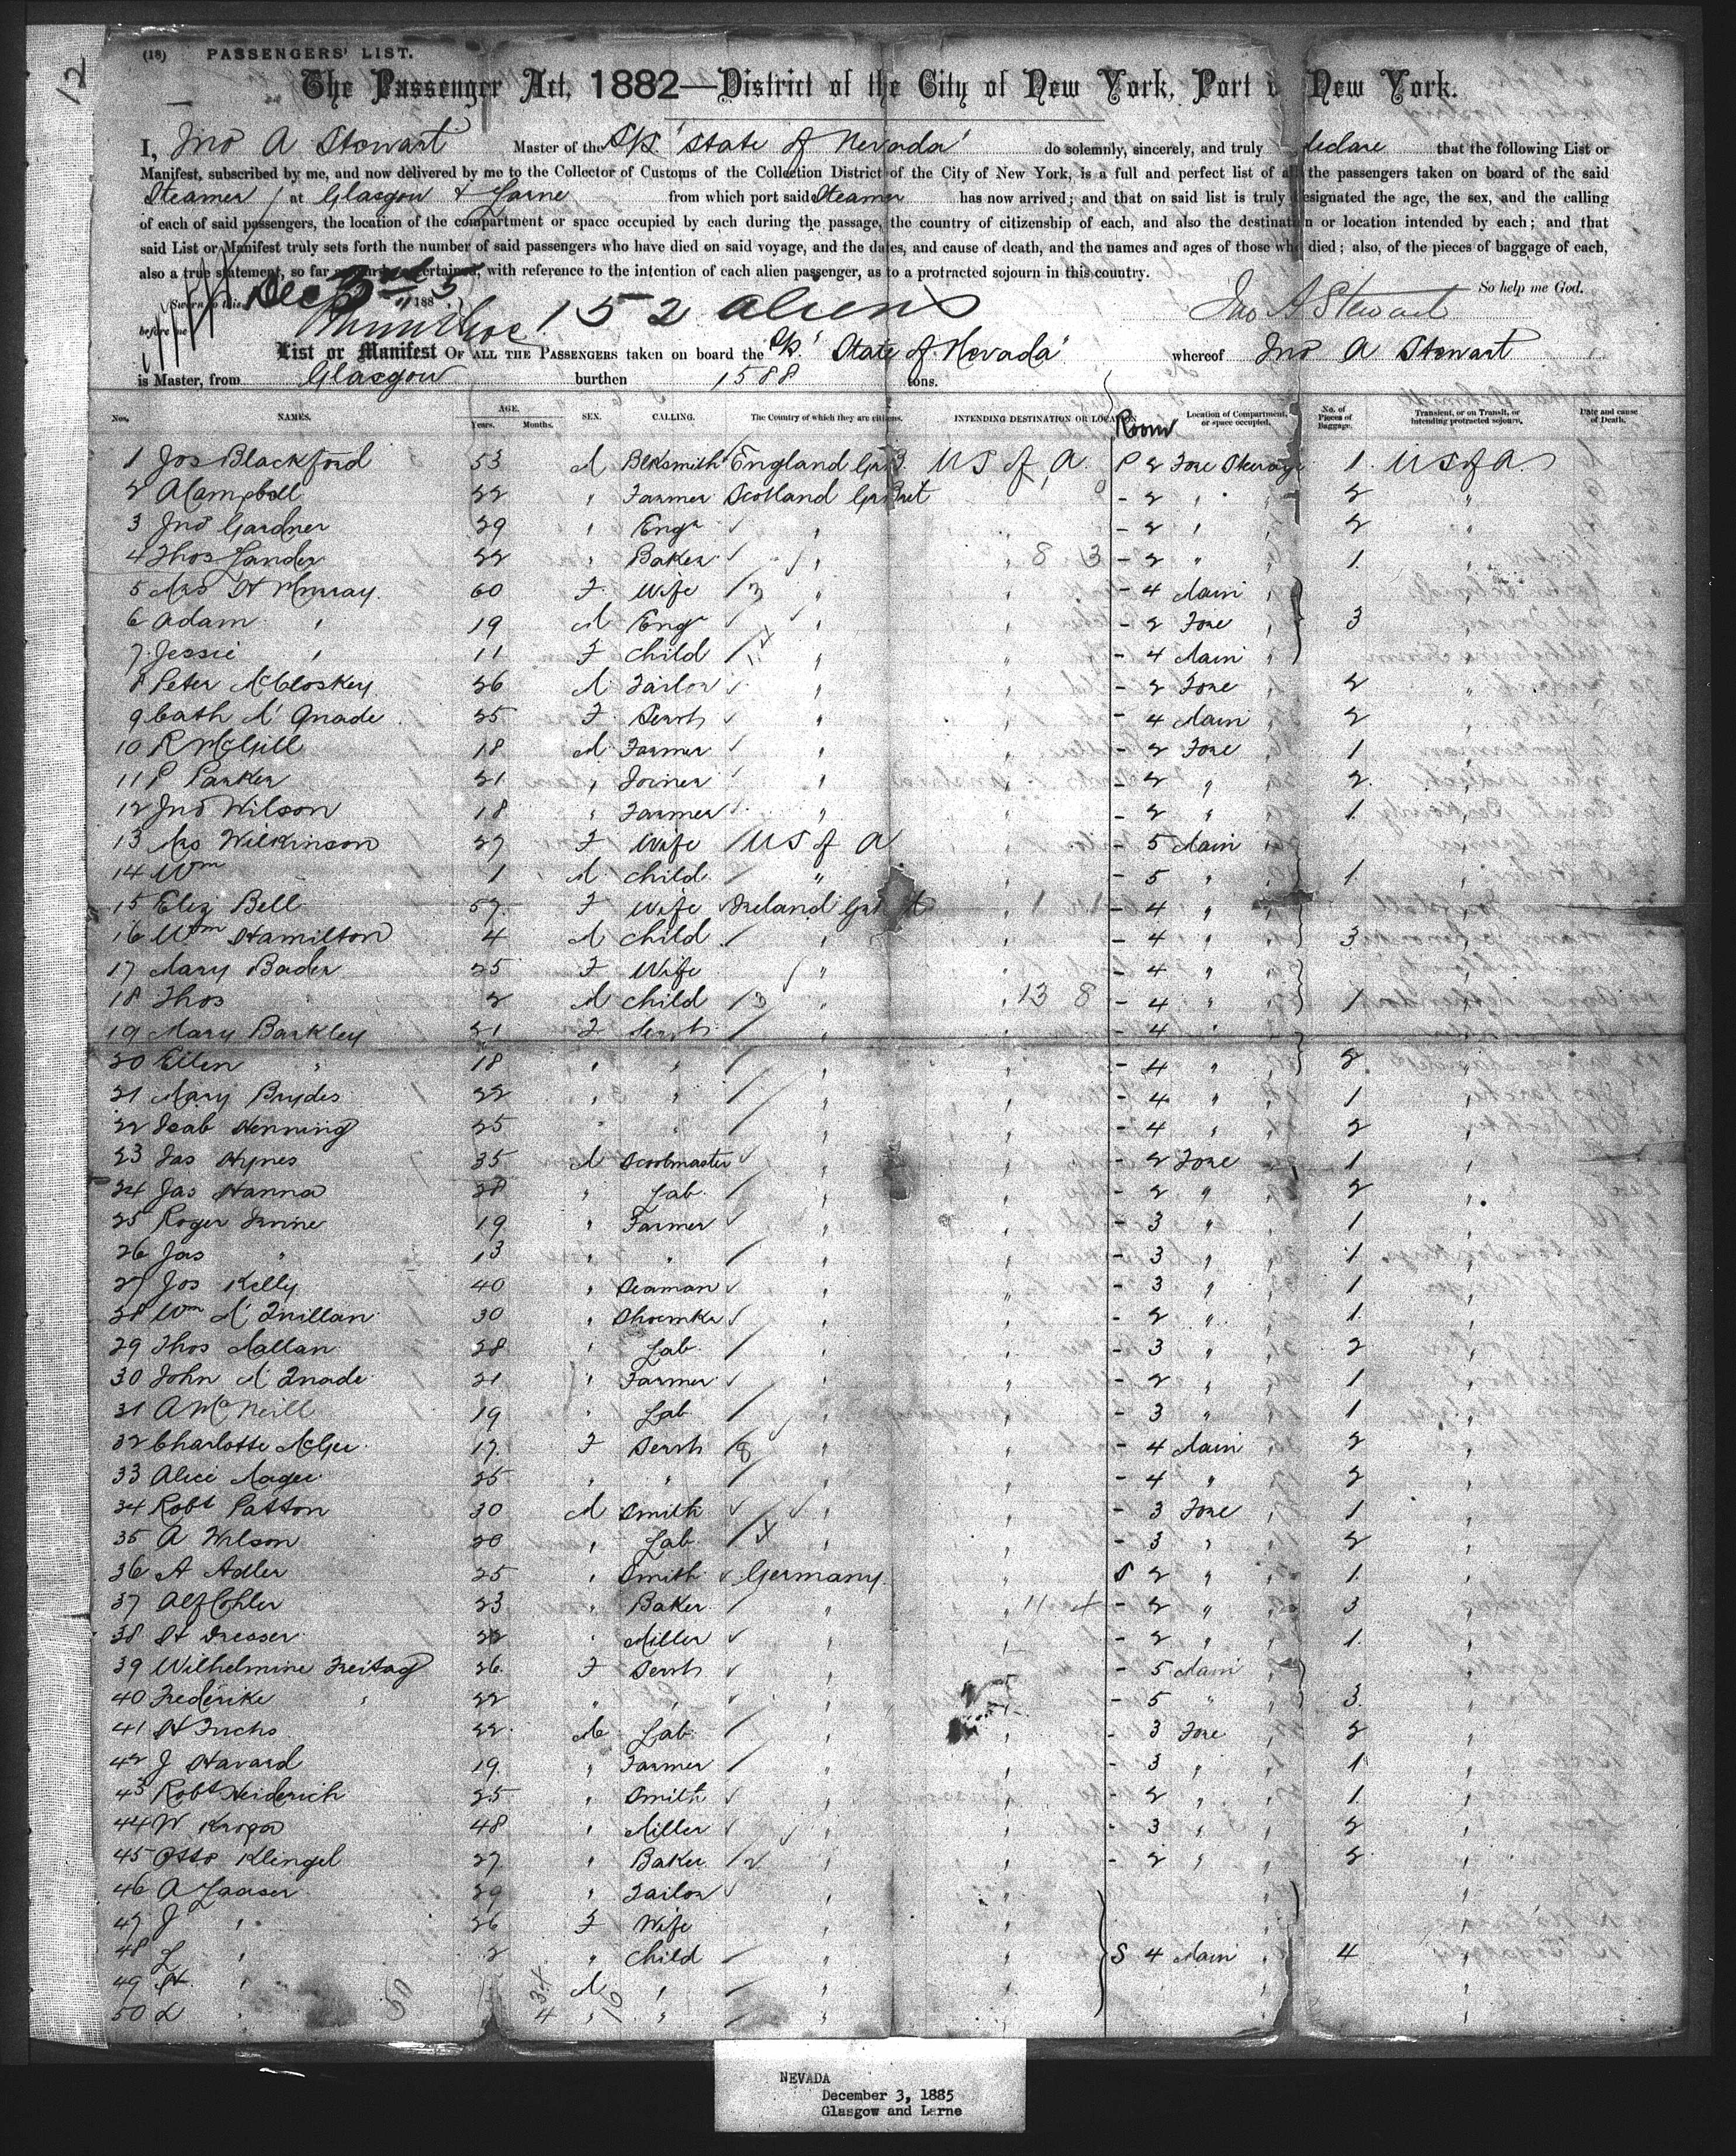 12
(18) PASSENGERS' LIST.
The Passenger Act, 1882—District of the City of New York, Port New York.
I, Jno A Stewart Master of the S/S "State of Nevada" do solemnly, sincerely, and truly declare that the following List or
Manifest, subscribed by me, and now delivered by me to the Collector of Customs of the Collection District of the City of New York, is a full and perfect list of all the passengers taken on board of the said
Steamer at Glasgow & Larne from which port said Steamer has now arrived; and that on said list is truly designated the age, the sex, and the calling
of each of said passengers, the location of the compartment or space occupied by each during the passage, the country of citizenship of each, and also the destination or location intended by each; and that
said List or Manifest truly sets forth the number of said passengers who have died on said voyage, and the dates, and cause of death, and the names and ages of those who died; also, of the pieces of baggage of each,
also a true statement, so far as can be ascertained, with reference to the intention of each alien passenger, as to a protracted sojourn in this country.
So help me God.
Sworn to this Dec 3rd 1885
before me 152 aliens Jno A Stewart
List or Manifest OF ALL THE PASSENGERS taken on board the S/S "State of Nevada" whereof Jno A Stewart
is Master, from Glasgow burthen 1588 tons.
Nos. NAMES. AGE. Years. Months. SEX. CALLING. The Country of which they are citizens. INTENDING DESTINATION OR LOCATION Room Location of Compartment, or space occupied. No. of Pieces of Baggage. Transient, or on Transit, or intending protracted sojourn. Date and cause of Death.
1 Jos Blackford 53 M Blksmith England Gr B. US of A. P 2 Fore Steerage 1. US of A.
2 A Campbell 22 " Farmer Scotland Gr Brit " - 2 " " 2 "
3 Jno Gardner 29 " Engr " " - 2 " 2 "
4 Thos Lander 22 " Baker " " 8 3 - 2 " 1. "
5 Mrs H Murray 60 F Wife 3 " " - 4 Main "
6 Adam " 19 M Engr " " - 2 Fore " 3 "
7 Jessie " 11 F Child " " - 4 Main "
8 Peter McCloskey 26 M Tailor " " - 2 Fore " 2 "
9 Cath Mc Quade 25 F Servt " " - 4 Main " 2 "
10 R McGill 18 M Farmer " " - 2 Fore " 1 "
11 P Parker 21 " Joiner " " - 2 " " 2. "
12 Jno Wilson 18 " Farmer " " - 2 " " 1. "
13 Mrs Wilkinson 27 F Wife US of A " - 5 Main
14 Wm " 1 M Child " " - 5 " 1. "
15 Eliz Bell 57 F Wife Ireland Grt " 1 1 - 4 "
16 Wm Hamilton 4 M Child " " - 4 " " 3 "
17 Mary Bader 25 F Wife " " - 4 " "
18 Thos " 2 M Child 3 " " 13 8 - 4 " " 1 "
19 Mary Barkley 21 F Servt - 4 "
20 Ellen " 18 " " " " - 4 " " 2. "
21 Mary Brydes 22 " " " " - 4 " " 1 "
22 Isab Henning 25 " " " " - 4 " " 2 "
23 Jas Hynes 35 M Scoolmaster " " - 2 Fore " 1 "
24 Jas Hanna 28 " Lab. " " - 2 " " 2 "
25 Roger Irvine 19 " Farmer " " - 3 " " 1 "
26 Jas " 13 " " " " - 3 " " 1. "
27 Jos Kelly 40 " Seaman " " - 3 " " 1 "
28 Wm Mc Quillan 30 " Shoemkr " " - 2 " " 1. "
29 Thos Mallan 28 " Lab. " " - 3 " " 2 "
30 John Mc Quade 21 " Farmer " " - 2 " " 1 "
31 A McNeill 19 " Lab " " - 3 " " 1 "
32 Charlotte McGee 17. F Servt 8 " " - 4 Main " 2 "
33 Alice Magee 25 " " " " - 4 " " 2 "
34 Robt Patton 30 M Smith " " - 3 Fore " 1 "
35 A Wilson 20 " Lab. " " - 3 " " 2 "
36 A Adler 25 " Smith Germany " S 2 " " 1. "
37 Alf Cohler 23 " Baker " " 11 4 - 2 " " 3 "
38 H Dresser 22 " Miller " " - 2 " " 1. "
39 Wilhelmine Freitag 26. F Servt " " - 5 Main "
40 Frederike " 22 " " " - 5 " " 3. "
41 H Fuchs 22. M Lab. " " - 3 Fore " 2 "
42 J Havard 19. " Farmer " " - 3 " " 1 "
43 Robt Heiderich 25 " Smith " " - 2 " " 1. "
44 W Kropa 48 " Miller " " - 3 " " 2 "
45 Otto Klingel 27 " Baker 2 " " - 2 " " 2. "
46 A Laaser 29 " Tailor " "
47 J " 26 F Wife " "
48 L " 2 " Child " " S 4 Main " 4 "
49 H. " M " " "
50 L " 4 " " " "
50
NEVADA
December 3, 1885
Glasgow and Larne